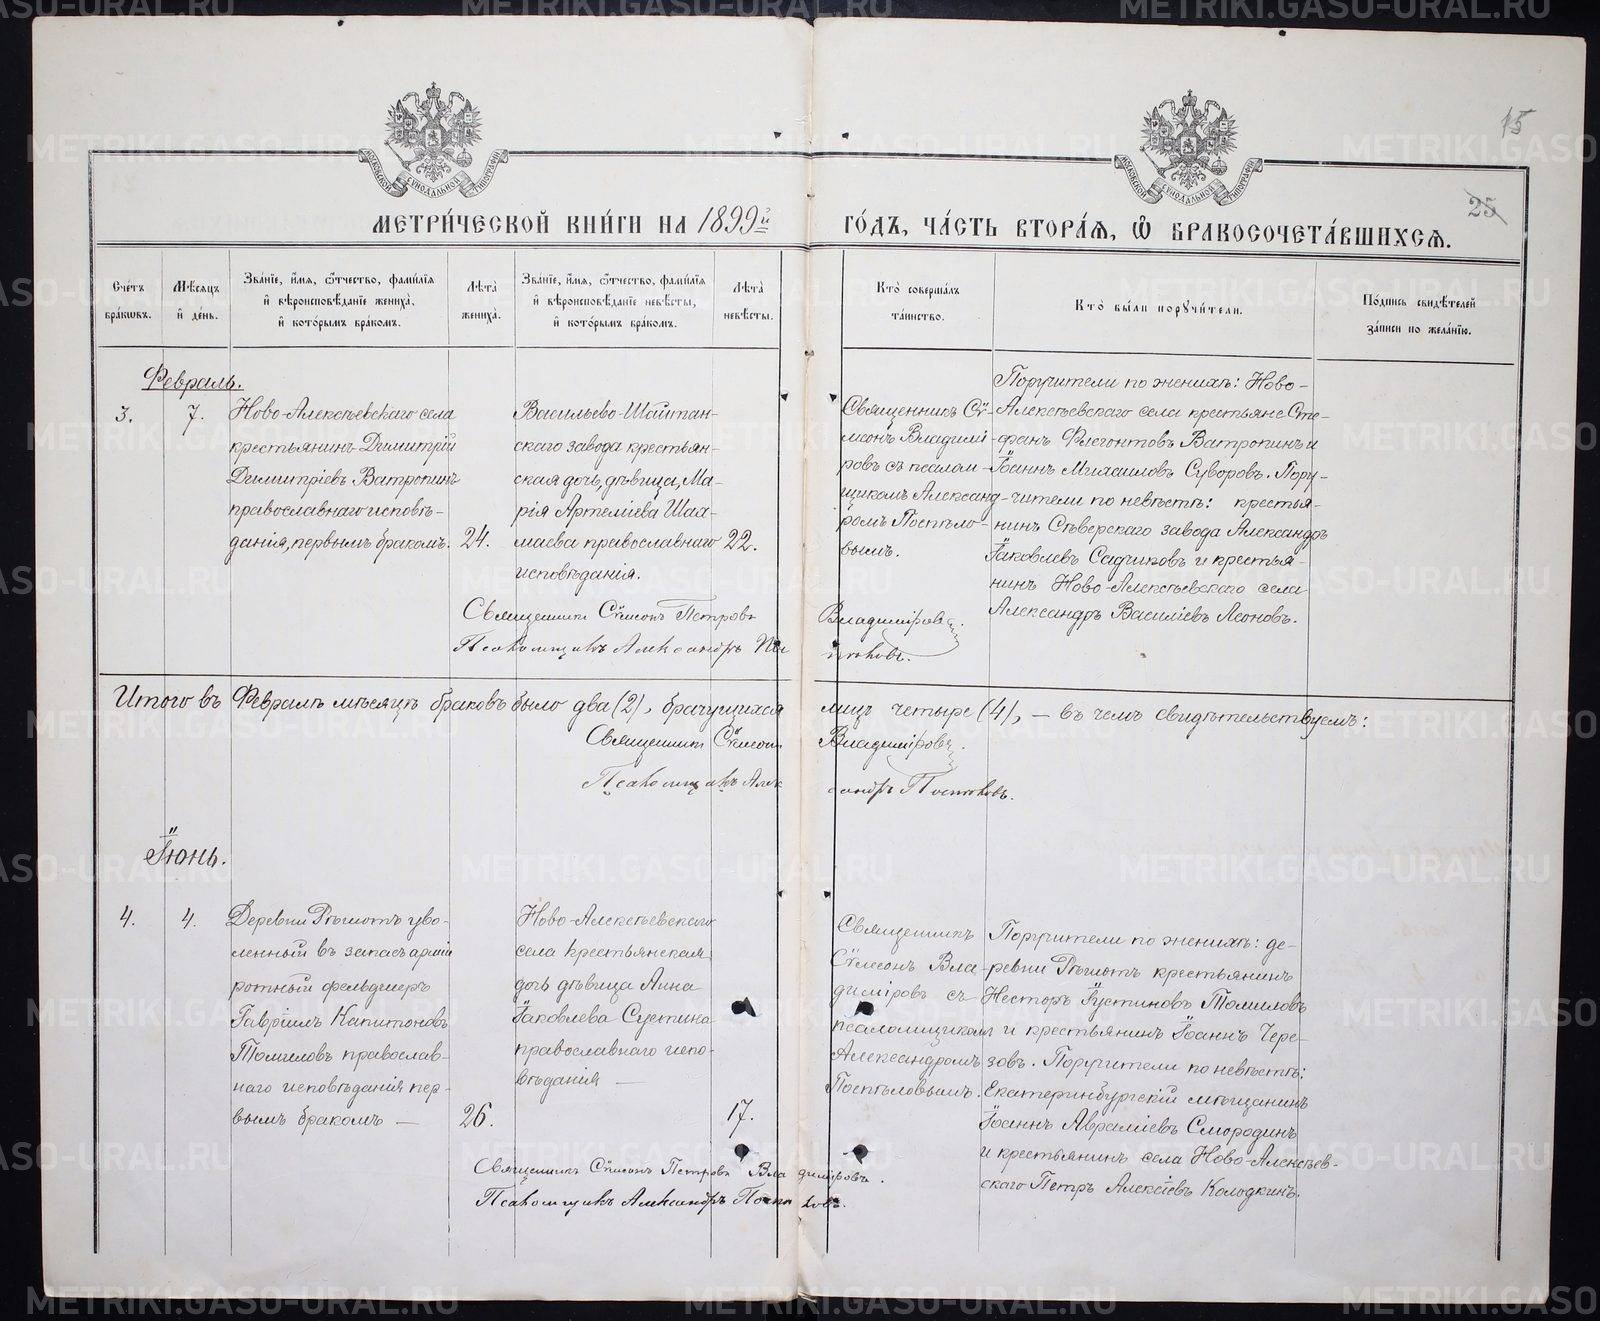 METRIKI.GASO-URAL.RU
15
МОСКОВСКОЙ СѴНОДАЛЬНОЙ ТИПОГРАФІИ
МОСКОВСКОЙ СѴНОДАЛЬНОЙ ТИПОГРАФІИ
25
МЕТРИ́ЧЕСКОЙ КНИ́ГИ НА 1899й
ГО́ДЪ, ЧА́СТЬ ВТОРА́Ѧ, Ѽ БРАКОСОЧЕТА́ВШИХСѦ.
Сче́тъ
бра́кѡвъ.
Мѣ́сѧцъ
и҆ де́нь.
Зва́нїе, и҆́мѧ, ѻ҆́тчество, фами́лїѧ
и҆ вѣроисповѣ́данїе жениха̀,
и҆ кото́рымъ бра́комъ.
Лѣ́та
жениха̀.
Зва́нїе, и҆́мѧ, ѻ҆́тчество, фами́лїѧ
и҆ вѣроисповѣ́данїе невѣ́сты,
и҆ кото́рымъ бра́комъ.
Лѣ́та
невѣ́сты.
Кто̀ соверша́лъ
та́инство.
Кто̀ бы́ли порꙋчи́тели.
По́дпись свидѣ́телей
за́писи по жела́нїю.
Февраль.
3.
7.
Ново-Алексѣевскаго села
крестьянинъ Димитрій
Димитріевъ Ватропинъ
православнаго исповѣ-
данія, первымъ бракомъ.
24.
Васильево-Шайтан-
скаго завода крестьян-
ская дочь, дѣвица, Ма-
рія Артеміева Шаа-
маева православнаго
исповѣданія.
22.
Священникъ Сѵ-
меонъ Владимі-
ровъ съ псалом-
щикомъ Александ-
ромъ Поспѣло-
вымъ.
Поручители по женихѣ: Ново-
Алексѣевскаго села крестьяне Сте-
фанъ Флегонтовъ Ватропинъ и
Іоаннъ Михаиловъ Суворовъ. Пору-
чители по невѣстѣ: крестья-
нинъ Сѣверскаго завода Александръ
Іаковлевъ Садчиковъ и крестья-
нинъ Ново-Алексѣевскаго села
Александръ Василіевъ Леоновъ.
Священникъ Сѵмеонъ Петровъ Владиміровъ.
Псаломщикъ Александръ
Итого въ Февралѣ мѣсяцѣ браковъ было два (2), брачущихся лицъ четыре (4), — въ чемъ свидѣтельствуемъ:
Священникъ Сѵмеонъ Владиміровъ.
Псаломщикъ Александръ Поспѣловъ.
Іюнь.
4.
4.
Деревни Рѣшотъ уво-
ленный въ запасъ арміи
ротный фельдшеръ
Гавріилъ Капитоновъ
Томиловъ православ-
наго исповѣданія пер-
вымъ бракомъ —
26.
Ново-Алексѣевскаго
села крестьянская
дочь дѣвица Анна
Іаковлева Сустина
православнаго испо-
вѣданія —
17.
Священникъ
Сѵмеонъ Вла-
диміровъ съ
псаломщикомъ
Александромъ
Поспѣловымъ.
Поручители по женихѣ: де-
ревни Рѣшотъ крестьянинъ
Несторъ Іустиновъ Томиловъ
и крестьянинъ Іоаннъ Чере-
зовъ. Поручители по невѣстѣ:
Екатеринбургскій мѣщанинъ
Іоаннъ Авраміевъ Смородинъ
и крестьянинъ села Ново-Алексѣев-
скаго Петръ Алексіевъ Колодкинъ.
Священникъ Сѵмеонъ Петровъ Владиміровъ.
Псаломщикъ Александръ Поспѣловъ.